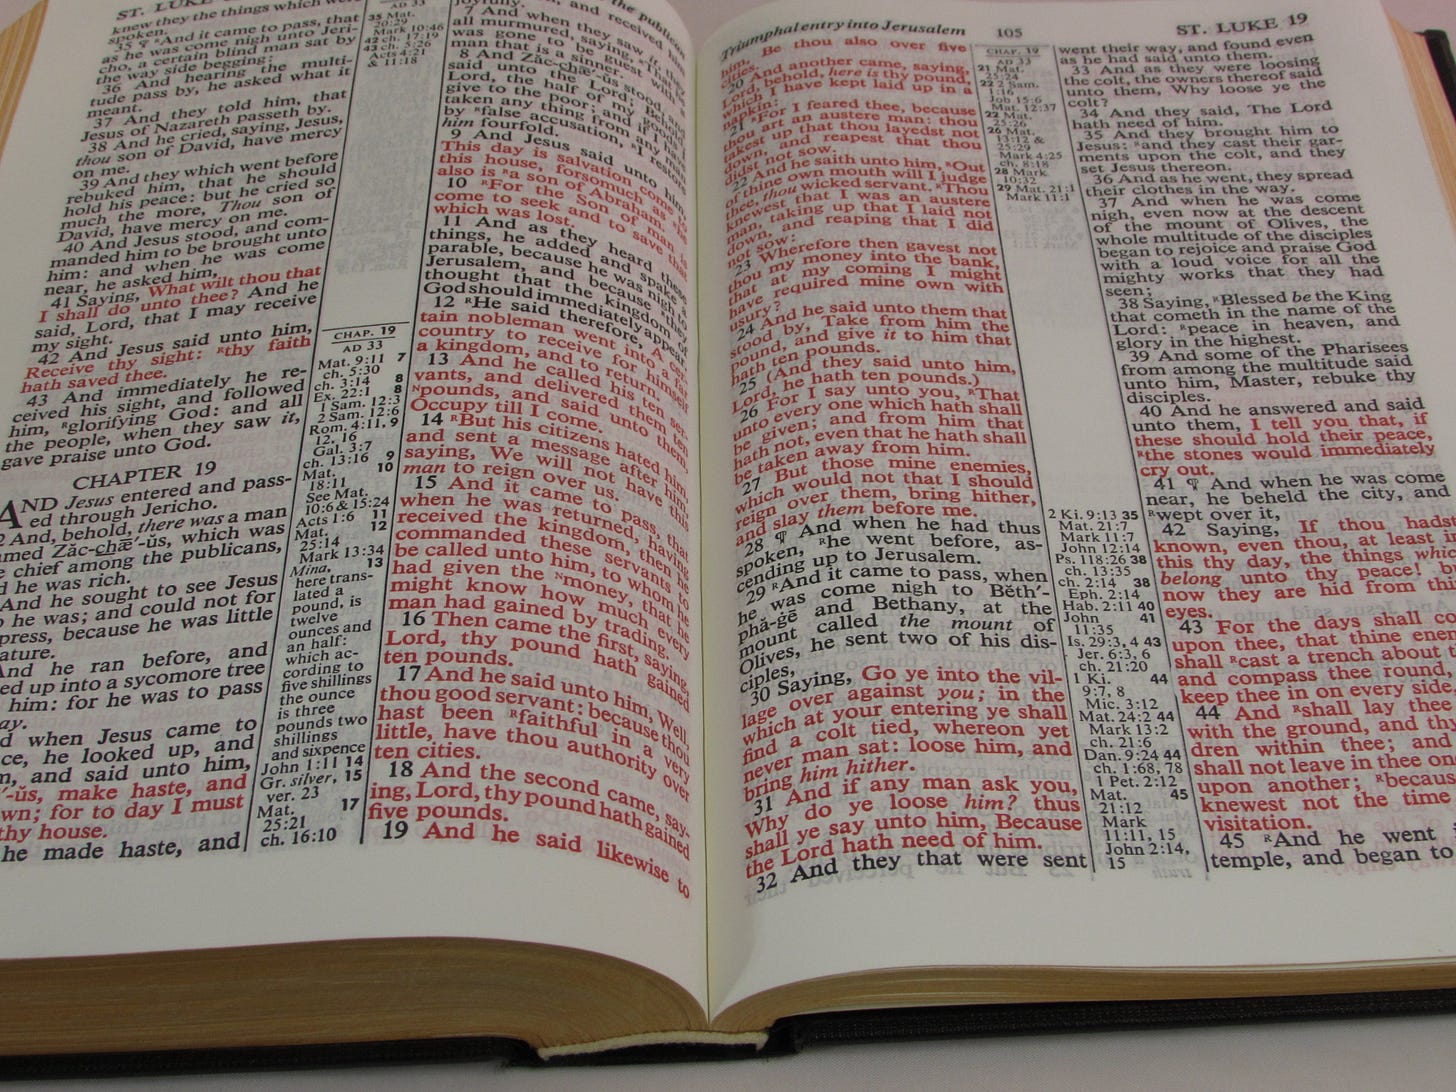 ST. LUKE
knew they the things which were
spoken.
35 ¶ ᴿAnd it came to pass, that
as he was come nigh unto Jeri-
cho, a certain blind man sat by
the way side begging:
36 And hearing the multi-
tude pass by, he asked what it
meant.
37 And they told him, that
Jesus of Nazareth passeth by.
38 And he cried, saying, Jesus,
thou son of David, have mercy
on me.
39 And they which went before
rebuked him, that he should
hold his peace: but he cried so
much the more, Thou son of
David, have mercy on me.
40 And Jesus stood, and com-
manded him to be brought unto
him: and when he was come
near, he asked him,
41 Saying, What wilt thou that
I shall do unto thee? And he
said, Lord, that I may receive
my sight.
42 And Jesus said unto him,
Receive thy sight: ᴿthy faith
hath saved thee.
43 And immediately he re-
ceived his sight, and followed
him, ᴿglorifying God: and all
the people, when they saw it,
gave praise unto God.
CHAPTER 19
AND Jesus entered and pass-
ed through Jericho.
2 And, behold, there was a man
named Zăc-chæ′-ŭs, which was
chief among the publicans,
he was rich.
And he sought to see Jesus
he was; and could not for
press, because he was little
ature.
And he ran before, and
ed up into a sycomore tree
him: for he was to pass
ay.
d when Jesus came to
ce, he looked up, and
m, and said unto him,
′-ŭs, make haste, and
wn; for to day I must
thy house.
he made haste, and
AD 33
35 Mat.
20:29
Mark 10:46
42 ch. 17:19
43 ch. 5:26
Acts 4:21
& 11:18
CHAP. 19
AD 33
Mat. 9:11 7
ch. 5:30
ch. 3:14 8
Ex. 22:1 8
1 Sam. 12:3
2 Sam. 12:6
Rom. 4:11, 9
12, 16
Gal. 3:7
ch. 13:16 9
Mat. 10
18:11
See Mat.
10:6 & 15:24
Acts 1:6 11
Mat. 12
25:14
Mark 13:34
Mina, 13
here trans-
lated a
pound, is
twelve
ounces and
an half:
which ac-
cording to
five shillings
the ounce
is three
pounds two
shillings
and sixpence
John 1:11 14
Gr. silver, 15
ver. 23
Mat. 17
25:21
ch. 16:10
the publican
joyfully. and received
7 And when they saw it, they
all murmured, saying, ᴿThat he
was gone to be guest with a
man that is a sinner.
8 And Zăc-chæ′-ŭs stood, and
said unto the Lord; Behold,
Lord, the half of my goods I
give to the poor; and if I have
taken any thing from any man
by ᴿfalse accusation, I restore
him fourfold.
9 And Jesus said unto him,
This day is salvation come to
this house, forsomuch as ᴿhe
also is ᴿa son of Abraham.
10 ᴿFor the Son of man is
come to seek and to save that
which was lost.
11 And as they heard these
things, he added and spake a
parable, because he was nigh to
Jerusalem, and because ᴿthey
thought that the kingdom of
God should immediately appear.
12 ᴿHe said therefore, A cer-
tain nobleman went into a far
country to receive for himself
a kingdom, and to return.
13 And he called his ten ser-
vants, and delivered them ten
ᴺpounds, and said unto them,
Occupy till I come.
14 ᴿBut his citizens hated him,
and sent a message after him,
saying, We will not have this
man to reign over us.
15 And it came to pass, that
when he was returned, having
received the kingdom, then he
commanded these servants to
be called unto him, to whom he
had given the ᴺmoney, that he
might know how much every
man had gained by trading.
16 Then came the first, saying,
Lord, thy pound hath gained
ten pounds.
17 And he said unto him, Well,
thou good servant: because thou
hast been ᴿfaithful in a very
little, have thou authority over
ten cities.
18 And the second came, say-
ing, Lord, thy pound hath gained
five pounds.
19 And he said likewise to
Triumphal entry into Jerusalem 105 ST. LUKE 19
him, Be thou also over five
cities.
20 And another came, saying,
Lord, behold, here is thy pound,
which I have kept laid up in a
napkin:
21 ᴿFor I feared thee, because
thou art an austere man: thou
takest up that thou layedst not
down, and reapest that thou
didst not sow.
22 And he saith unto him, ᴿOut
of thine own mouth will I judge
thee, thou wicked servant. ᴿThou
knewest that I was an austere
man, taking up that I laid not
down, and reaping that I did
not sow:
23 Wherefore then gavest not
thou my money into the bank,
that at my coming I might
have required mine own with
usury?
24 And he said unto them that
stood by, Take from him the
pound, and give it to him that
hath ten pounds.
25 (And they said unto him,
Lord, he hath ten pounds.)
26 For I say unto you, ᴿThat
unto every one which hath shall
be given; and from him that
hath not, even that he hath shall
be taken away from him.
27 But those mine enemies,
which would not that I should
reign over them, bring hither,
and slay them before me.
28 ¶ And when he had thus
spoken, ᴿhe went before, as-
cending up to Jerusalem.
29 ᴿAnd it came to pass, when
he was come nigh to Bĕth′-
phă-gē and Bethany, at the
mount called the mount of
Olives, he sent two of his dis-
ciples,
30 Saying, Go ye into the vil-
lage over against you; in the
which at your entering ye shall
find a colt tied, whereon yet
never man sat: loose him, and
bring him hither.
31 And if any man ask you,
Why do ye loose him? thus
shall ye say unto him, Because
the Lord hath need of him.
32 And they that were sent
CHAP. 19
AD 33
21 Mat.
25:24
22 2 Sam.
1:16
Job 15:6
Mat. 12:37
22 Mat.
25:26
26 Mat.
13:12 &
25:29
Mark 4:25
ch. 8:18
28 Mark
10:32
29 Mat. 21:1
Mark 11:1
2 Ki. 9:13 35
Mat. 21:7
Mark 11:7
John 12:14
Ps. 118:26 38
ch. 13:35
ch. 2:14 38
Eph. 2:14
Hab. 2:11 40
John 41
11:35
Is. 29:3, 4 43
Jer. 6:3, 6
ch. 21:20
1 Ki. 44
9:7, 8
Mic. 3:12
Mat. 24:2 44
Mark 13:2
ch. 21:6
Dan. 9:24 44
ch. 1:68, 78
1 Pet. 2:12
Mat. 45
21:12
Mark
11:11, 15
John 2:14,
15
went their way, and found even
as he had said unto them.
33 And as they were loosing
the colt, the owners thereof said
unto them, Why loose ye the
colt?
34 And they said, The Lord
hath need of him.
35 And they brought him to
Jesus: ᴿand they cast their gar-
ments upon the colt, and they
set Jesus thereon.
36 And as he went, they spread
their clothes in the way.
37 And when he was come
nigh, even now at the descent
of the mount of Olives, the
whole multitude of the disciples
began to rejoice and praise God
with a loud voice for all the
mighty works that they had
seen;
38 Saying, ᴿBlessed be the King
that cometh in the name of the
Lord: ᴿpeace in heaven, and
glory in the highest.
39 And some of the Pharisees
from among the multitude said
unto him, Master, rebuke thy
disciples.
40 And he answered and said
unto them, I tell you that, if
these should hold their peace,
ᴿthe stones would immediately
cry out.
41 ¶ And when he was come
near, he beheld the city, and
ᴿwept over it,
42 Saying, If thou hads
known, even thou, at least i
this thy day, the things whic
belong unto thy peace! b
now they are hid from th
eyes.
43 For the days shall co
upon thee, that thine enem
shall ᴿcast a trench about t
and compass thee round,
keep thee in on every side,
44 And ᴿshall lay thee
with the ground, and th
dren within thee; and
shall not leave in thee on
upon another; ᴿbecaus
knewest not the time
visitation.
45 ᴿAnd he went
temple, and began to